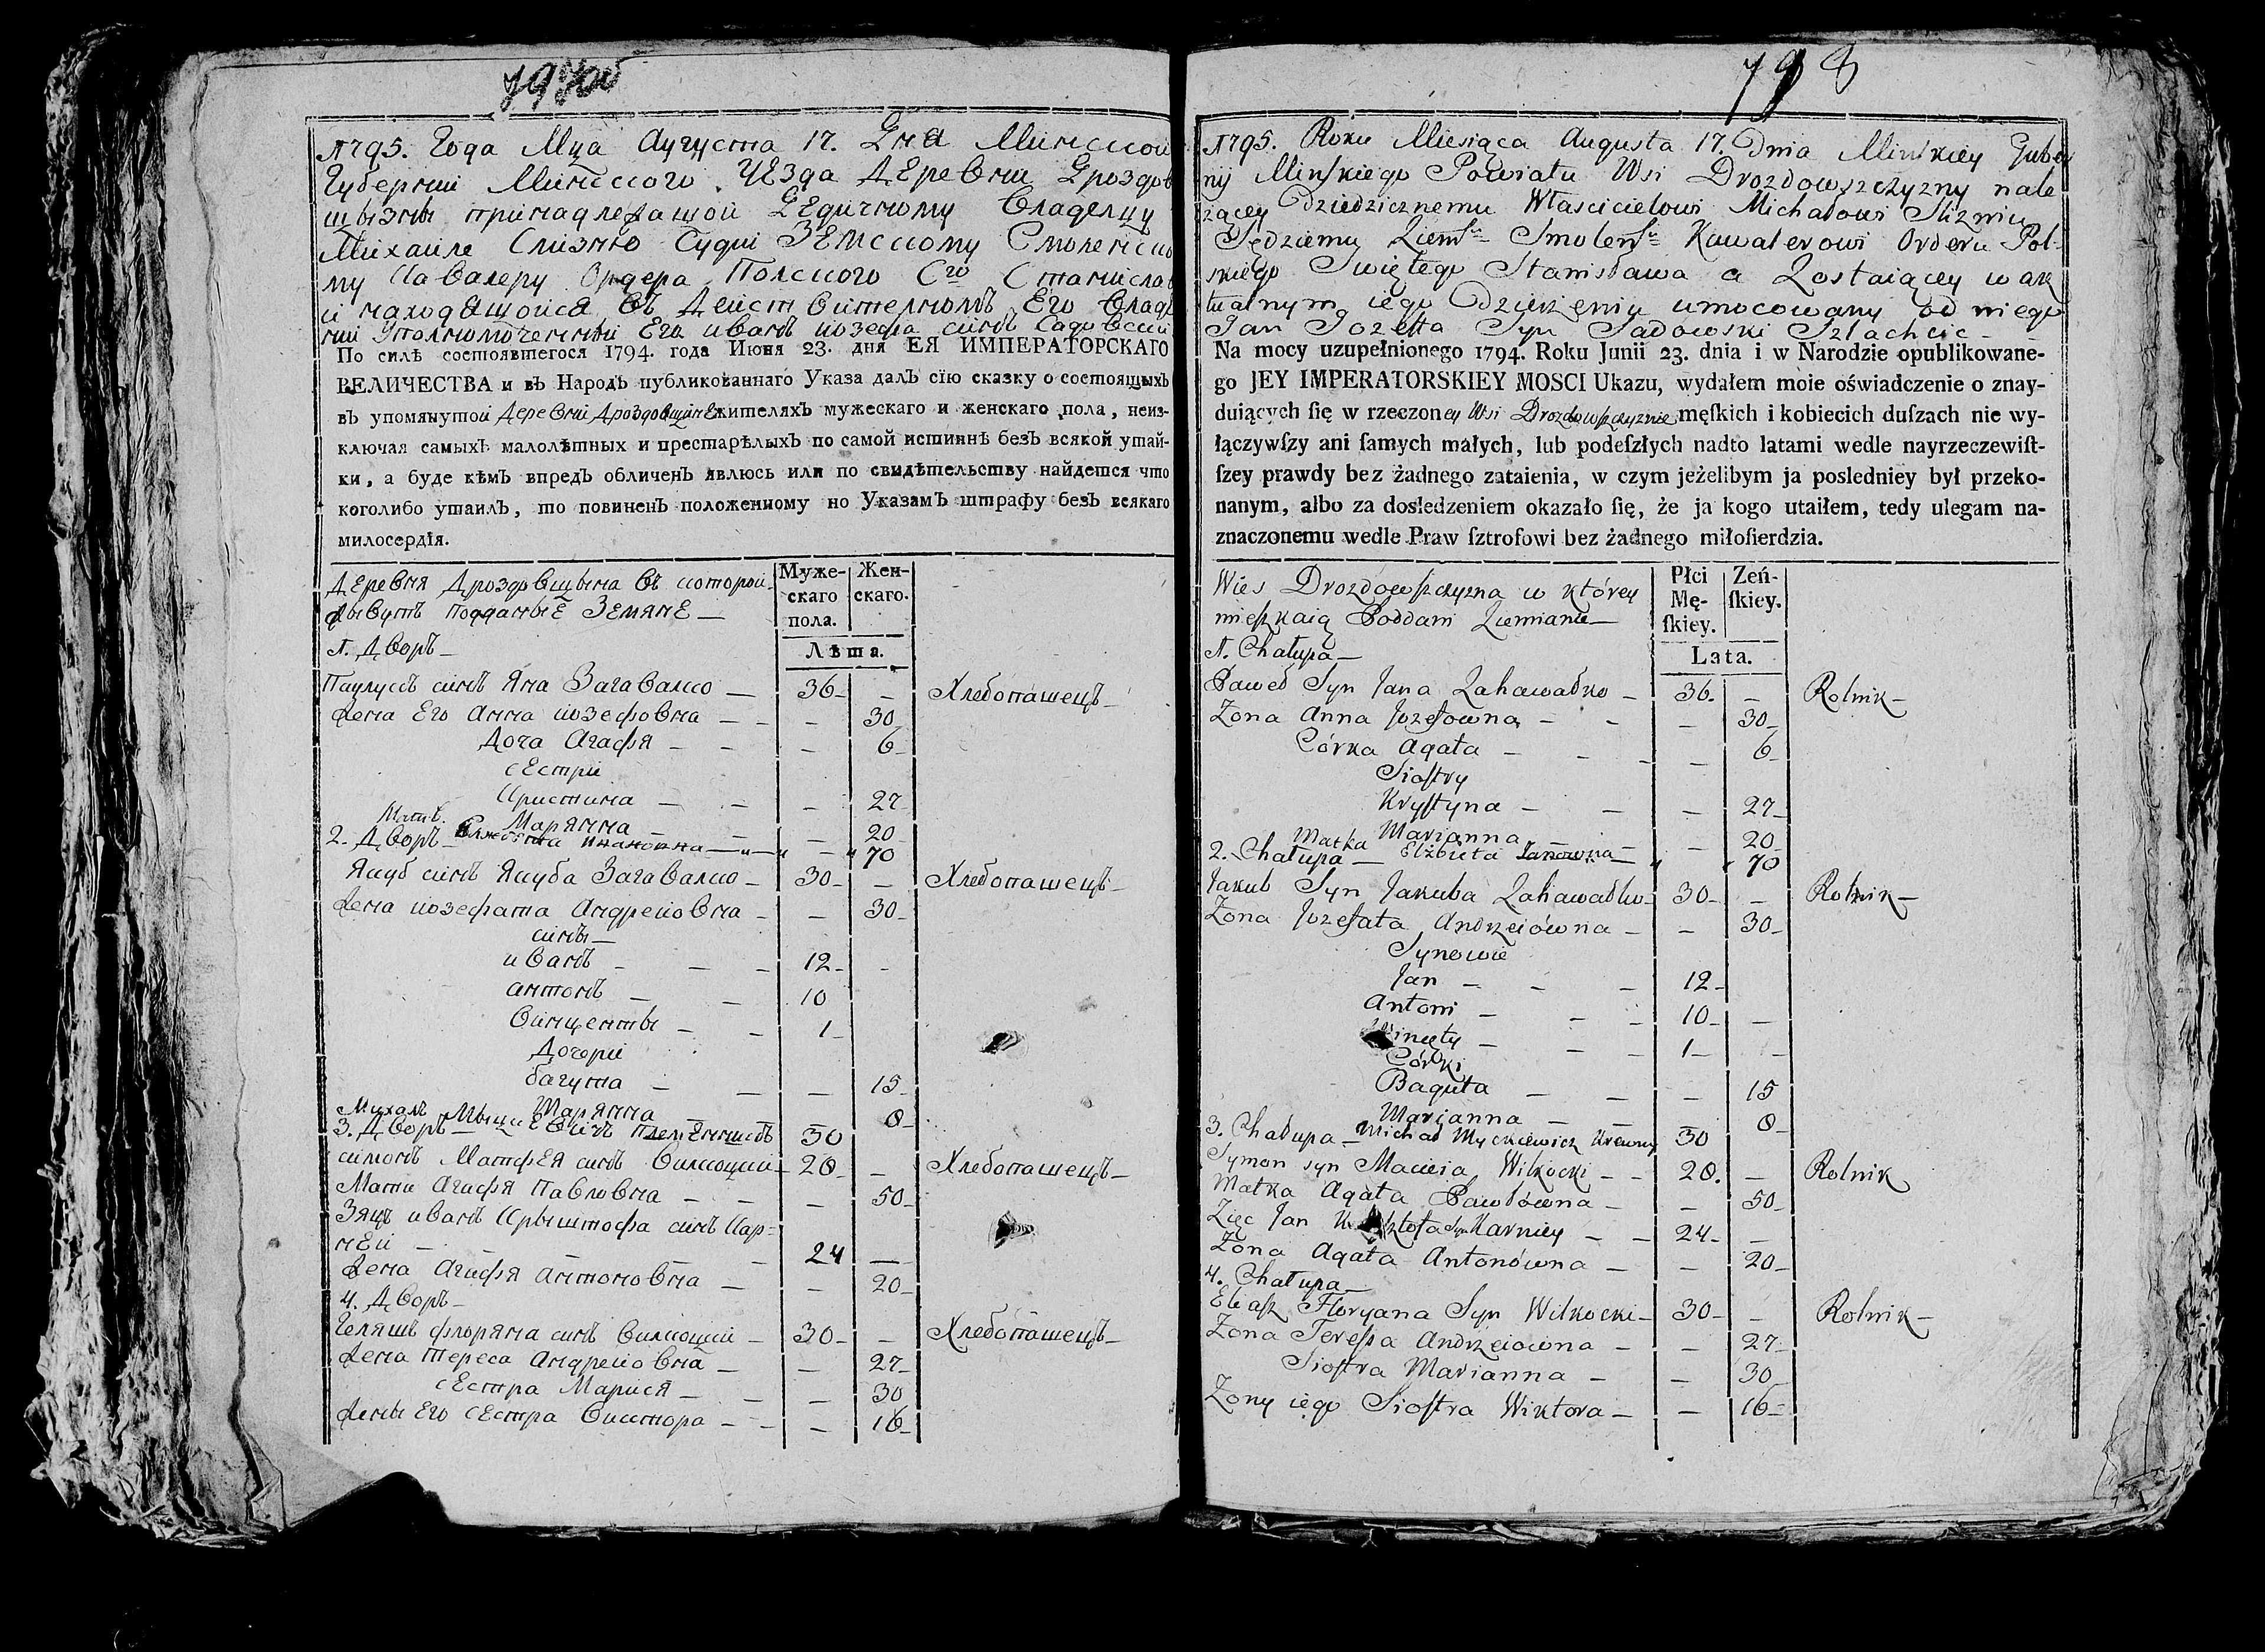 1795. Года Мца Августа 17. Дна Минской
Губерний Минского УЕзда ДЕРевни Дроздов
щызны принадлежащой ДЕдичному Владелцу
Михаиле Слизню Судии ЗЕМскому Смоленско
му Кавалеру Ордера Полского Сго Станислав
и находящойся въ Действителномъ Его Владе
нии Уполномоченный Его иванъ иозефа синъ Садовский
По силѣ состоявшегося 1794. года Июня 23. дня ЕЯ ИМПЕРАТОРСКАГО
ВЕЛИЧЕСТВА и въ Народъ публикованнаго Указа далъ сїю сказку о состоящыхъ
въ упомянутой ДеРевни Дроздовщизне жителяхъ мужескаго и женскаго пола, неиз-
ключая самыхъ малолѣтных и престарѣлыхъ по самой истиннѣ безъ всякой утай-
ки, а буде кѣмъ впредъ обличенъ явлюсь или по свидѣтельству найдется что
коголибо утаилъ, то повиненъ положенному но Указамъ штрафу безъ всякаго
милосердїя.
ДЕРевня Дроздовщызна въ которой
Живутъ поддание ЗЕмянЕ —
Муже-
скаго
пола.
Жен-
скаго.
Лѣта.
1. Дворъ —
Паулусъ синъ Яна Загавалко — 36 — — Хлебопашецъ —
Жена Его Анна иозефовна — — — 30
Доча Агафя — — — 6 —
сЕстри
Кристина — — — 27
Марянна — — — 20
2. Дворъ — Матъ. Елжбета Ивановна — — 70
Якуб синъ Якуба Загавалко — 30 — — Хлебопашецъ —
Жена иозефата Андреиовна — — 30 —
сины —
иванъ — — — 12 — —
антонъ — — 10
Винценты — — 1 —
Дочери
багута — — — 15
Марянна 8 —
3. Дворъ — Михалъ Мыцкевичъ племЕнникъ 30
симонъ МатфЕя синъ Вилкоцкий — 28 — — Хлебопашецъ —
Мати Агафя Павловна — — — 50 —
Зяцъ иванъ Крыштофа синъ Кар=
нЕй — — — — 24 —
Жена Агафя антоновна — — 20 —
4. Дворъ —
Геляшъ флоряна синъ Вилкоцкий — 30 — — Хлебопашецъ —
Жена Тереса Андреиовна — — 27 —
сЕстра Марися — — — 30
Жены Его сЕстра Виктора — — — 16 —
798
1795. Roku Miesiąca Augusta 17. Dnia Minskiey Guber
nij Minskiego Powiatu Wsi Drozdowszczyzny nale
żącey Dziedzicznemu Własciciełowi Michałowi Slizniu
Sędziemu Ziemſu Smolenſu Kawalerowi Orderu Pol-
skiego Swiętego Stanisława a Zostaiącey w ak
tualnym iego Dzierżeniu umocowany od niego
Jan Jozeffa Syn Sadowski Szlachcic —
Na mocy uzupełnionego 1794. Roku Junii 23. dnia i w Narodzie opublikowane-
go JEY IMPERATORSKIEY MOSCI Ukazu, wydałem moie oświadczenie o znay-
duiących ſię w rzeczoney Wsi Drozdowſzczyznie męſkich i kobiecich duſzach nie wy-
łączywſzy ani ſamych małych, lub podeſzłych nadto latami wedle nayrzeczewiſt-
ſzey prawdy bez żadnego zataienia, w czym jeżelibym ja posledniey był przeko-
nanym, albo za dosledzeniem okazało ſię, że ja kogo utaiłem, tedy ulegam na-
znaczonemu wedle Praw ſztrofowi bez żadnego miłoſierdzia.
Wies Drozdowſzczyzna w którey
mieſzkaią Poddani Ziemianie —
Płci
Mę-
ſkiey.
Zeń-
ſkiey.
Lata.
1. Chałupa —
Paweł Syn Jana Zahawałko — 36. — Rolnik —
Zona Anna Jozefowna — — — 30 —
Córka Agata — — — — 6 —
Sioſtry
Kryſtyna — — — 27 —
Marianna — — — 20
2. Chałupa — Matka Elżbieta Janowna — 70
Jakub Syn Jakuba Zahawałko — 30 — — Rolnik —
Zona Jozefata Andrzeiówna — — 30 —
Synowie
Jan — — — 12 —
Antoni — — — 10 — —
Winęty — — — 1 — —
Córki
Baguta — — — 15
Marianna — — 8 —
3. Chałupa — Michał Myckiewicz Krewny 30
Symon syn Macieia Wilkocki — — 28. — Rolnik
Matka Agata Pawłówna — — 50 —
Zięc Jan Krzysztofa Syn Karniey — — 24 — —
Zona Agata Antonówna — — 20 —
4. Chałupa —
Eliaſz Floryana Syn Wilkocki — 30 — — Rolnik —
Zona Tereſsa Andrzeiowna — — 27 —
Sioſtra Marianna — — 30
Zony iego Sioſtra Wiktora — — 16 —